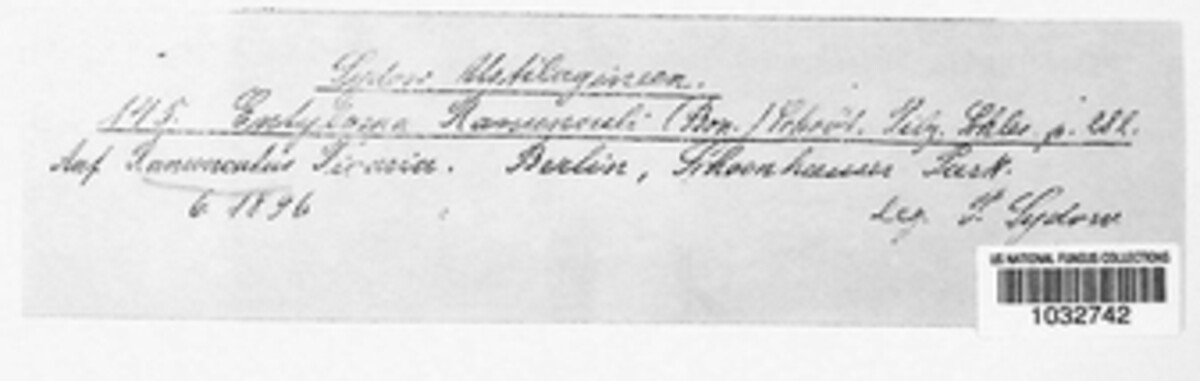 Sydow Ustilagineen.
145. Entyloma Ranunculi (Bon.) Schröt. Pilz. Schles. p. 282.
Auf Ranunculus Ficaria. Berlin, Schoenhauser Park.
6 1896
Leg. P. Sydow
US NATIONAL FUNGUS COLLECTIONS
1032742